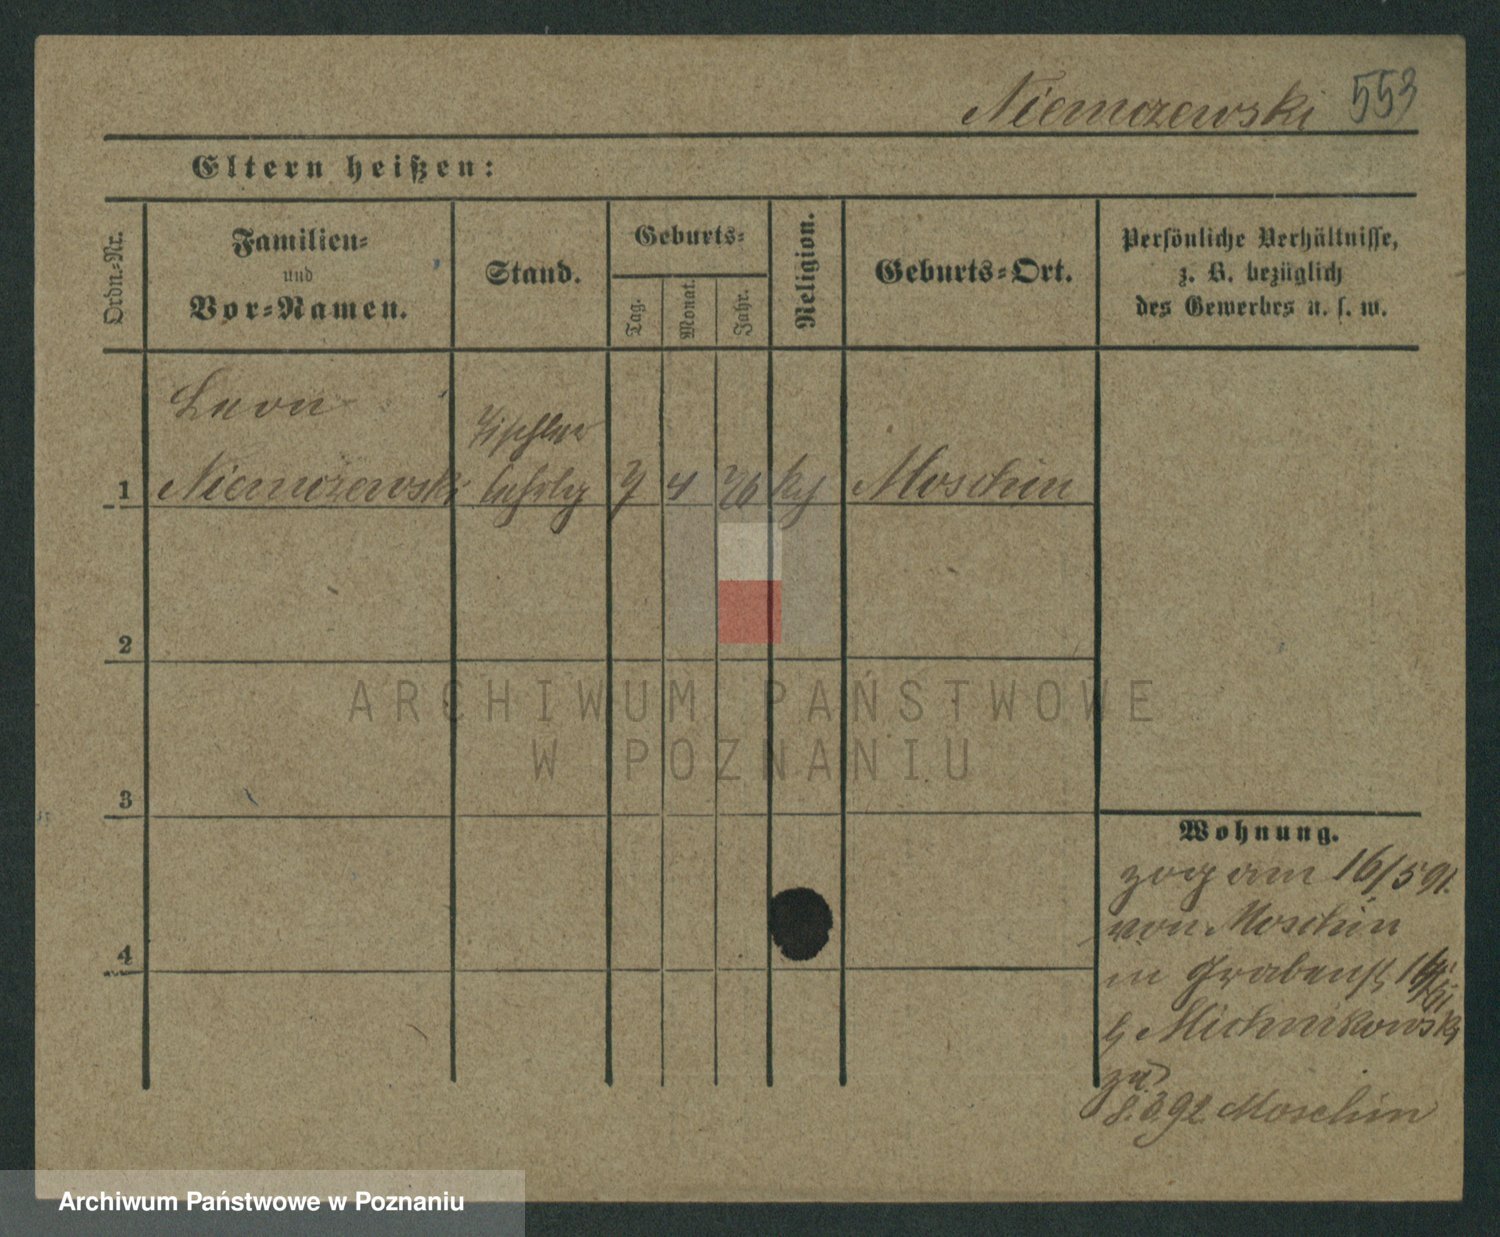 Niemczewski 553
Eltern heißen:
Ordn.-Nr.
Familien-
und
Vor-Namen.
Stand.
Geburts-
Tag.
Monat.
Jahr.
Religion.
Geburts-Ort.
Persönliche Verhältnisse,
z. B. bezüglich
des Gewerbes u. s. w.
Leon
Tischler
1 Niemczewski lehrlg 7 4 76 kth Moschin
2
3
4
Wohnung.
zog am 16/5 91.
von Moschin
in Grabenst.
b Michnikowski
zu
8.3.92 Moschin
ARCHIWUM PAŃSTWOWE
W POZNANIU
Archiwum Państwowe w Poznaniu